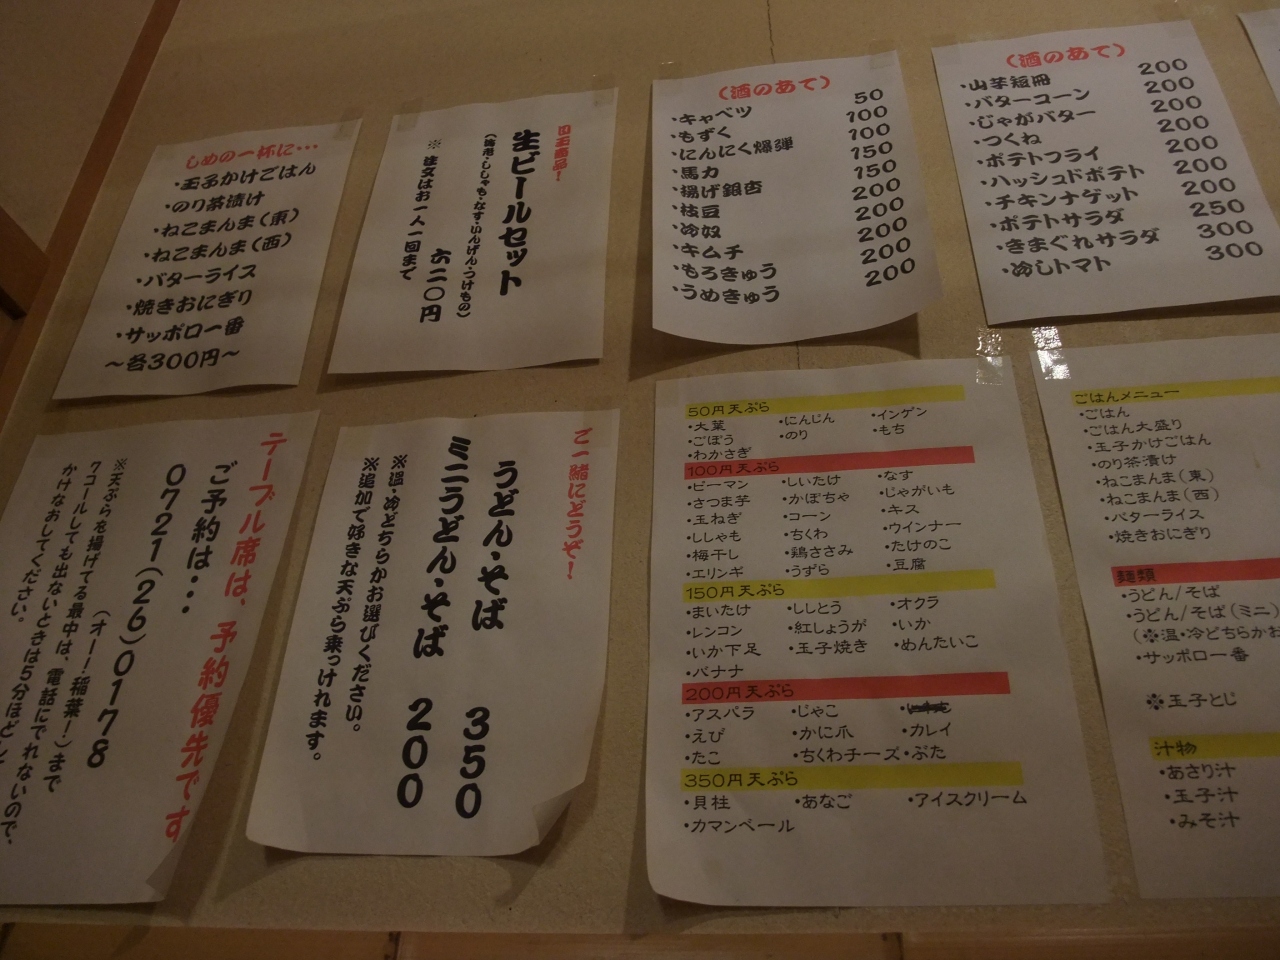 しめの一杯に…
・玉子かけごはん
・のり茶漬け
・ねこまんま(東)
・ねこまんま(西)
・バターライス
・焼きおにぎり
・サッポロ一番
～各300円～
生ビールセット
六二〇円
※ 注文はお一人一回まで
(酒のあて)
・キャベツ 50
・もずく 100
・にんにく爆弾 100
・馬力 150
・揚げ銀杏 150
・枝豆 200
・冷奴 200
・キムチ 200
・もろきゅう 200
・うめきゅう 200
(酒のあて)
・山芋短冊 200
・バターコーン 200
・じゃがバター 200
・つくね 200
・ポテトフライ 200
・ハッシュドポテト 200
・チキンナゲット 200
・ポテトサラダ 250
・きまぐれサラダ 300
・冷しトマト 300
テーブル席は、予約優先です
ご予約は・・・
0721(26)0178
(オー!稲葉!)まで
※天ぷらを揚げてる最中は、電話にでれないので、
7コールしても出ないときは5分ほどして
かけなおしてください。
ご一緒にどうぞ!
うどん・そば 350
ミニうどん・そば 200
※温・冷どちらかお選びください。
※追加で好きな天ぷら乗っけれます。
50円天ぷら
・大葉 ・にんじん ・インゲン
・ごぼう ・のり ・もち
・わかさぎ
100円天ぷら
・ピーマン ・しいたけ ・なす
・さつま芋 ・かぼちゃ ・じゃがいも
・玉ねぎ ・コーン ・キス
・ししゃも ・ちくわ ・ウインナー
・梅干し ・鶏ささみ ・たけのこ
・エリンギ ・うずら ・豆腐
150円天ぷら
・まいたけ ・ししとう ・オクラ
・レンコン ・紅しょうが ・いか
・いか下足 ・玉子焼き ・めんたいこ
・バナナ
200円天ぷら
・アスパラ ・じゃこ
・えび ・かに爪 ・カレイ
・たこ ・ちくわチーズ ・ぶた
350円天ぷら
・貝柱 ・あなご ・アイスクリーム
・カマンベール
ごはんメニュー
・ごはん
・ごはん大盛り
・玉子かけごはん
・のり茶漬け
・ねこまんま(東)
・ねこまんま(西)
・バターライス
・焼きおにぎり
麺類
・うどん/そば
・うどん/そば(ミニ)
(※温・冷どちらかお
・サッポロ一番
※玉子とじ
汁物
・あさり汁
・玉子汁
・みそ汁